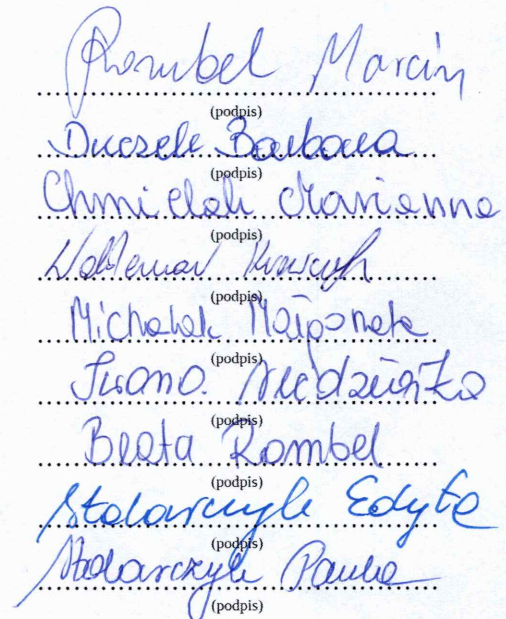 Rombel Marcin
(podpis)
Duczek Barbara
(podpis)
Chmielak Marianna
(podpis)
Waldemar Krawczyk
(podpis)
Michalak Małgorzata
(podpis)
Iwona Niedzwiążka
(podpis)
Beata Rombel
(podpis)
Stolarczyk Edyta
(podpis)
Stolarczyk Paulina
(podpis)